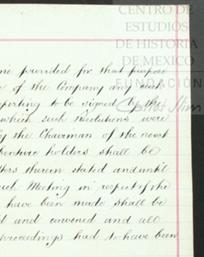 CENTRO DE
ESTUDIOS
DE HISTORIA
DE MEXICO
FUNDACIÓN
Carlos Slim
me provided for that purpose
e of the Company any such
porting to be signed by the
which such Resolutions were
by the Chairman of the next
benture holders shall be
tters therein stated and until
such Meeting in respect of the
have been made shall be
ld and convened and all
proceedings had to have been